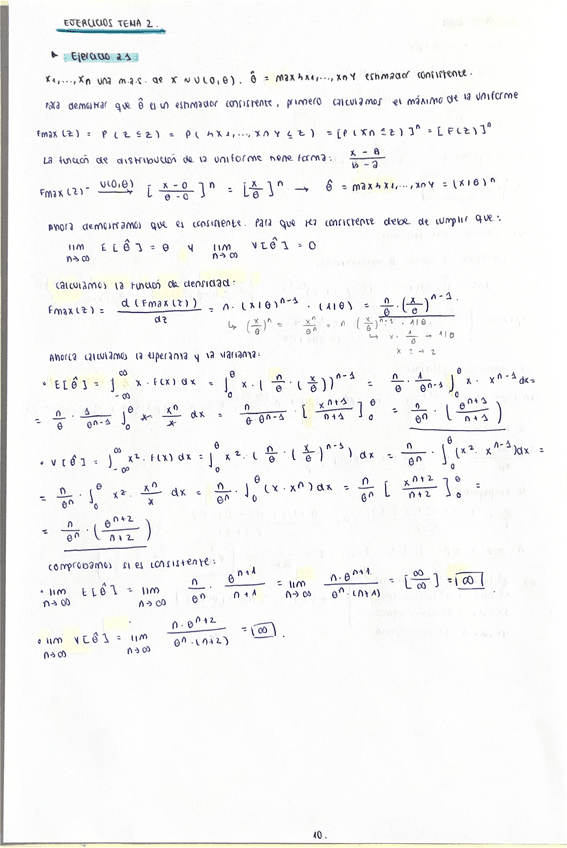 EJERCICIOS TEMA 2.
▸ Ejercicio 2.1
X1,...,Xn una m.a.s. de X ~ U(0,θ). θ̂ = max{X1,...,Xn} estimador consistente.
Para demostrar que θ̂ es un estimador consistente, primero calculamos el máximo de la uniforme
Fmax(z) = P(Z ≤ z) = P({X1,...,Xn} ≤ z) = [P(Xn ≤ z)]^n = [F(z)]^n
La función de distribución de la uniforme tiene forma: (x - a)/(b - a)
Fmax(z) = U(0,θ) → [(x-0)/(θ-0)]^n = [x/θ]^n → θ̂ = max{X1,...,Xn} = (x/θ)^n
Ahora demostramos que es consistente. Para que sea consistente debe de cumplir que:
lim n→∞ E[θ̂] = θ y lim n→∞ V[θ̂] = 0
Calculamos la función de densidad:
Fmax(z) = d(Fmax(z))/dz = n · (x/θ)^n-1 · (1/θ) = n/θ · (x/θ)^n-1.
↳ (x/θ)^n = x^n/θ^n = n · (x/θ)^n-1 · 1/θ.
↳ x · 1/θ → 1/θ
Ahora calculamos la esperanza y la varianza:
• E[θ̂] = ∫-∞^∞ x · f(x) dx = ∫0^θ x · (n/θ · (x/θ))^n-1 = n/θ · 1/θ^n-1 ∫0^θ x · x^n-1 dx =
= n/θ · 1/θ^n-1 ∫0^θ x · x^n/x dx = n/(θ·θ^n-1) · [x^n+1/(n+1)]0^θ = n/θ^n · (θ^n+1/(n+1))
• V[θ̂] = ∫-∞^∞ x² · f(x) dx = ∫0^θ x² · (n/θ · (x/θ)^n-1) dx = n/θ^n · ∫0^θ (x² · x^n-1) dx =
= n/θ^n · ∫0^θ x² · x^n/x dx = n/θ^n · ∫0^θ (x · x^n) dx = n/θ^n [x^n+2/(n+2)]0^θ =
= n/θ^n · (θ^n+2/(n+2))
Comprobamos si es consistente:
• lim n→∞ E[θ̂] = lim n→∞ n/θ^n · θ^n+1/(n+1) = lim n→∞ n·θ^n+1/(θ^n·(n+1)) = [∞/∞] = ∞.
• lim n→∞ V[θ̂] = lim n→∞ n·θ^n+2/(θ^n·(n+2)) = ∞.
10.